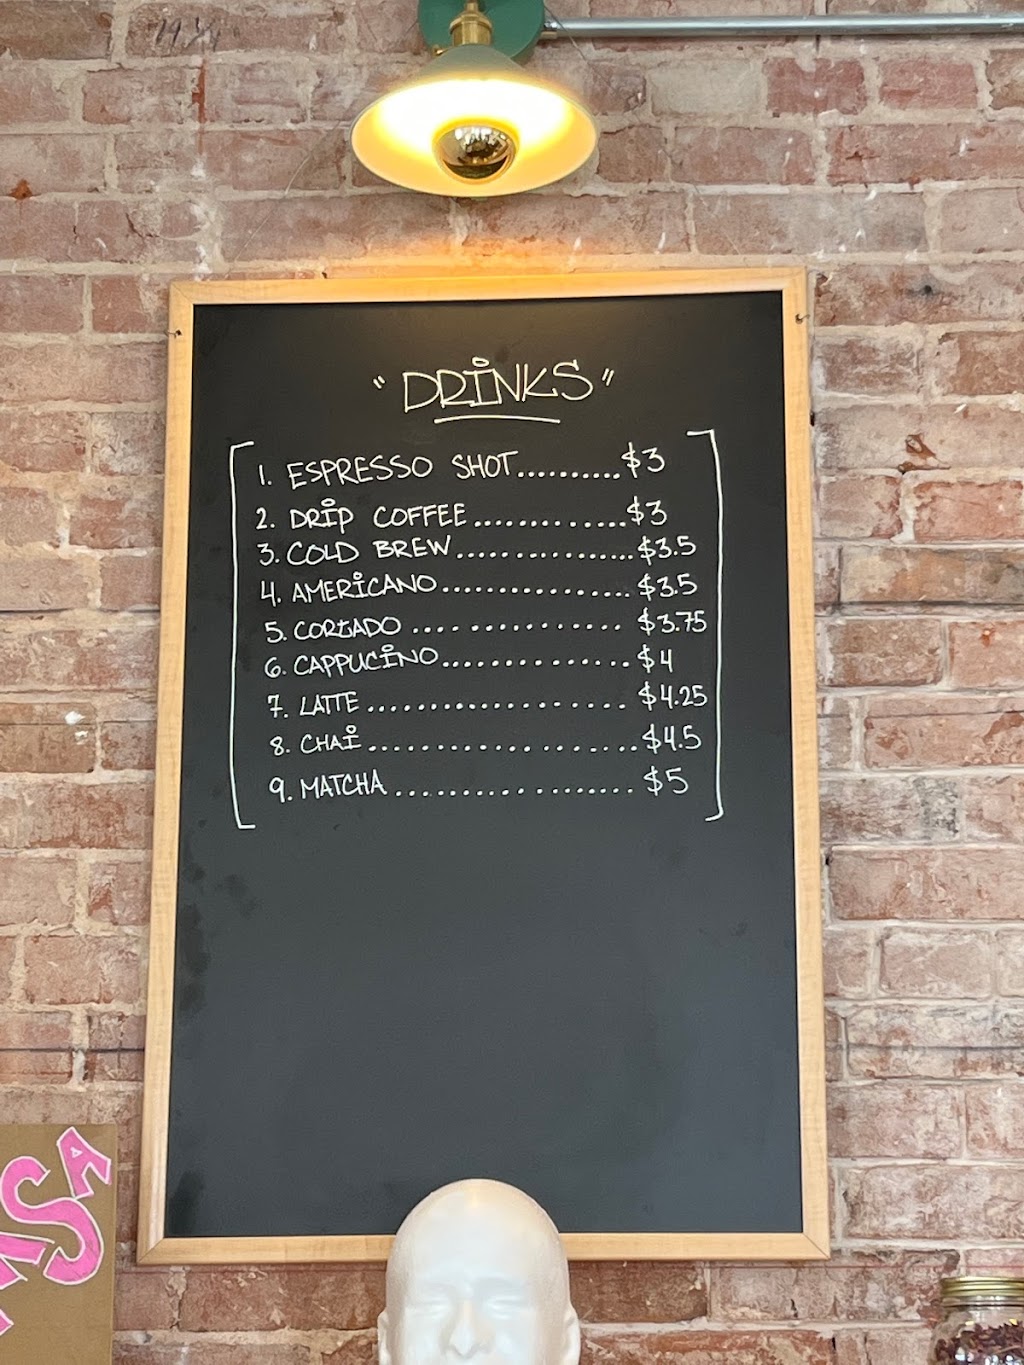 "DRINKS"
1. ESPRESSO SHOT..........$3
2. DRIP COFFEE.............$3
3. COLD BREW................$3.5
4. AMERICANO................$3.5
5. CORTADO ................. $3.75
6. CAPPUCINO...............$4
7. LATTE..................... $4.25
8. CHAI......................$4.5
9. MATCHA................... $5
SA